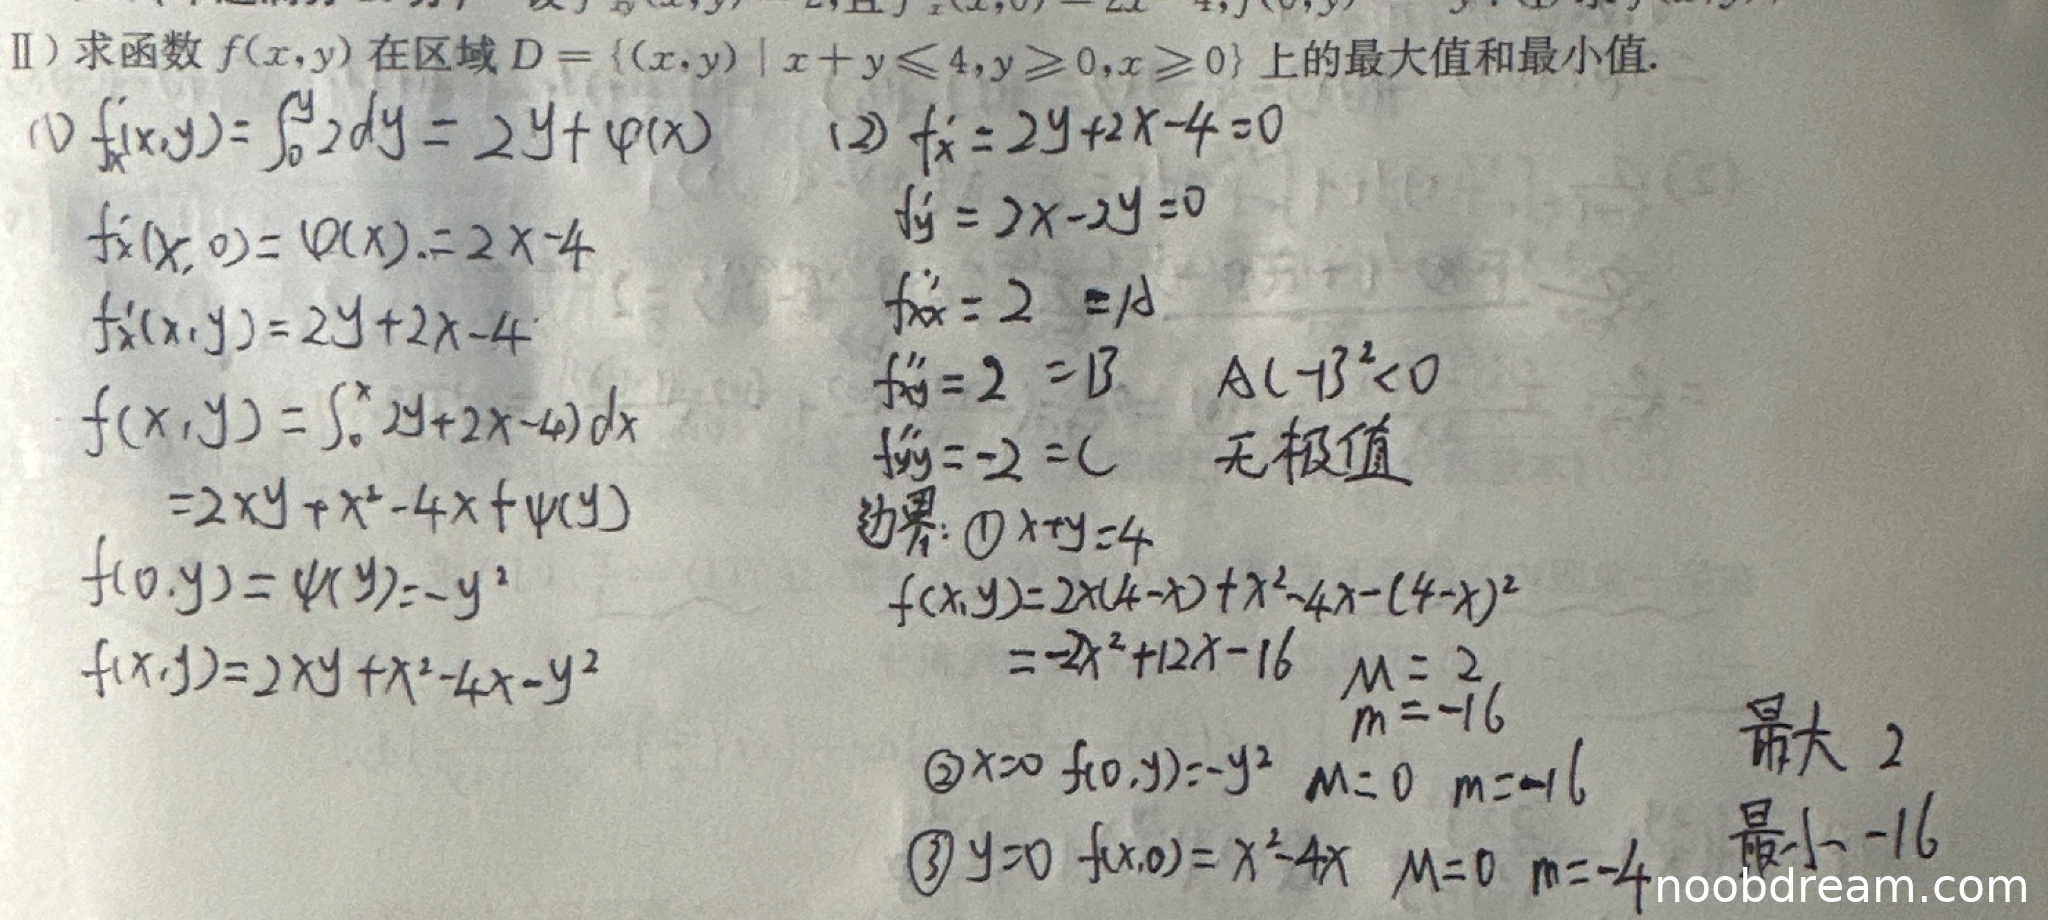 Ⅱ) 求函数 f(x,y) 在区域 D = {(x,y) | x + y ⩽ 4, y ⩾ 0, x ⩾ 0} 上的最大值和最小值.
(1) f'x(x,y) = ∫₀^y 2dy = 2y + φ(x)
f'x(x,0) = φ(x). = 2x-4
f'x(x,y) = 2y+2x-4
f(x,y) = ∫₀^x 2y+2x-4) dx
=2xy + x² - 4x + ψ(y)
f(0,y) = ψ(y) = -y²
f(x,y) = 2xy + x² - 4x - y²
(2) f'x = 2y+2x-4 = 0
f'y = 2x-2y = 0
f''xx = 2 = A
f''xy = 2 = B AC-B² < 0
f''yy = -2 = C 无极值
边界: ① x+y=4
f(x,y) = 2x(4-x) + x² - 4x - (4-x)²
= -2x² + 12x - 16 M = 2
m = -16
② x=0 f(0,y) = -y² M = 0 m = -16
③ y=0 f(x,0) = x² - 4x M=0 m = -4
最大 2
最小 -16
noobdream.com